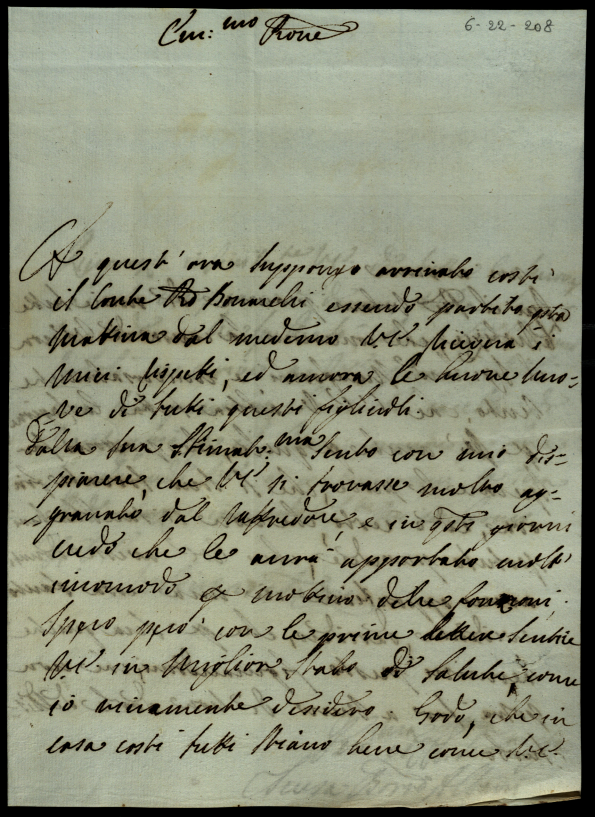 6-22-208
Em:mo Prone
A quest'ora suppongo arrivato costi
il Conte Bonarelli essendo partito qsta
Mattina dal medemo VE riceverà i
miei rispetti, ed ancora le buone Nuo-
ve di tutti questi figlioli.
Dalla sua Stimat:ma sento con mio dis-
piacere che VE si trovasse molto ag-
gravato dal raffredore, e in qsti giorni
credo che le avrà apportato molt'
incomodo p motivo delle fonzioni.
Spero però con le prime lettere sentire
VE in miglior stato di salute, come
io vivamente desidero. Godo, che in
casa costi tutti stiano bene come VE